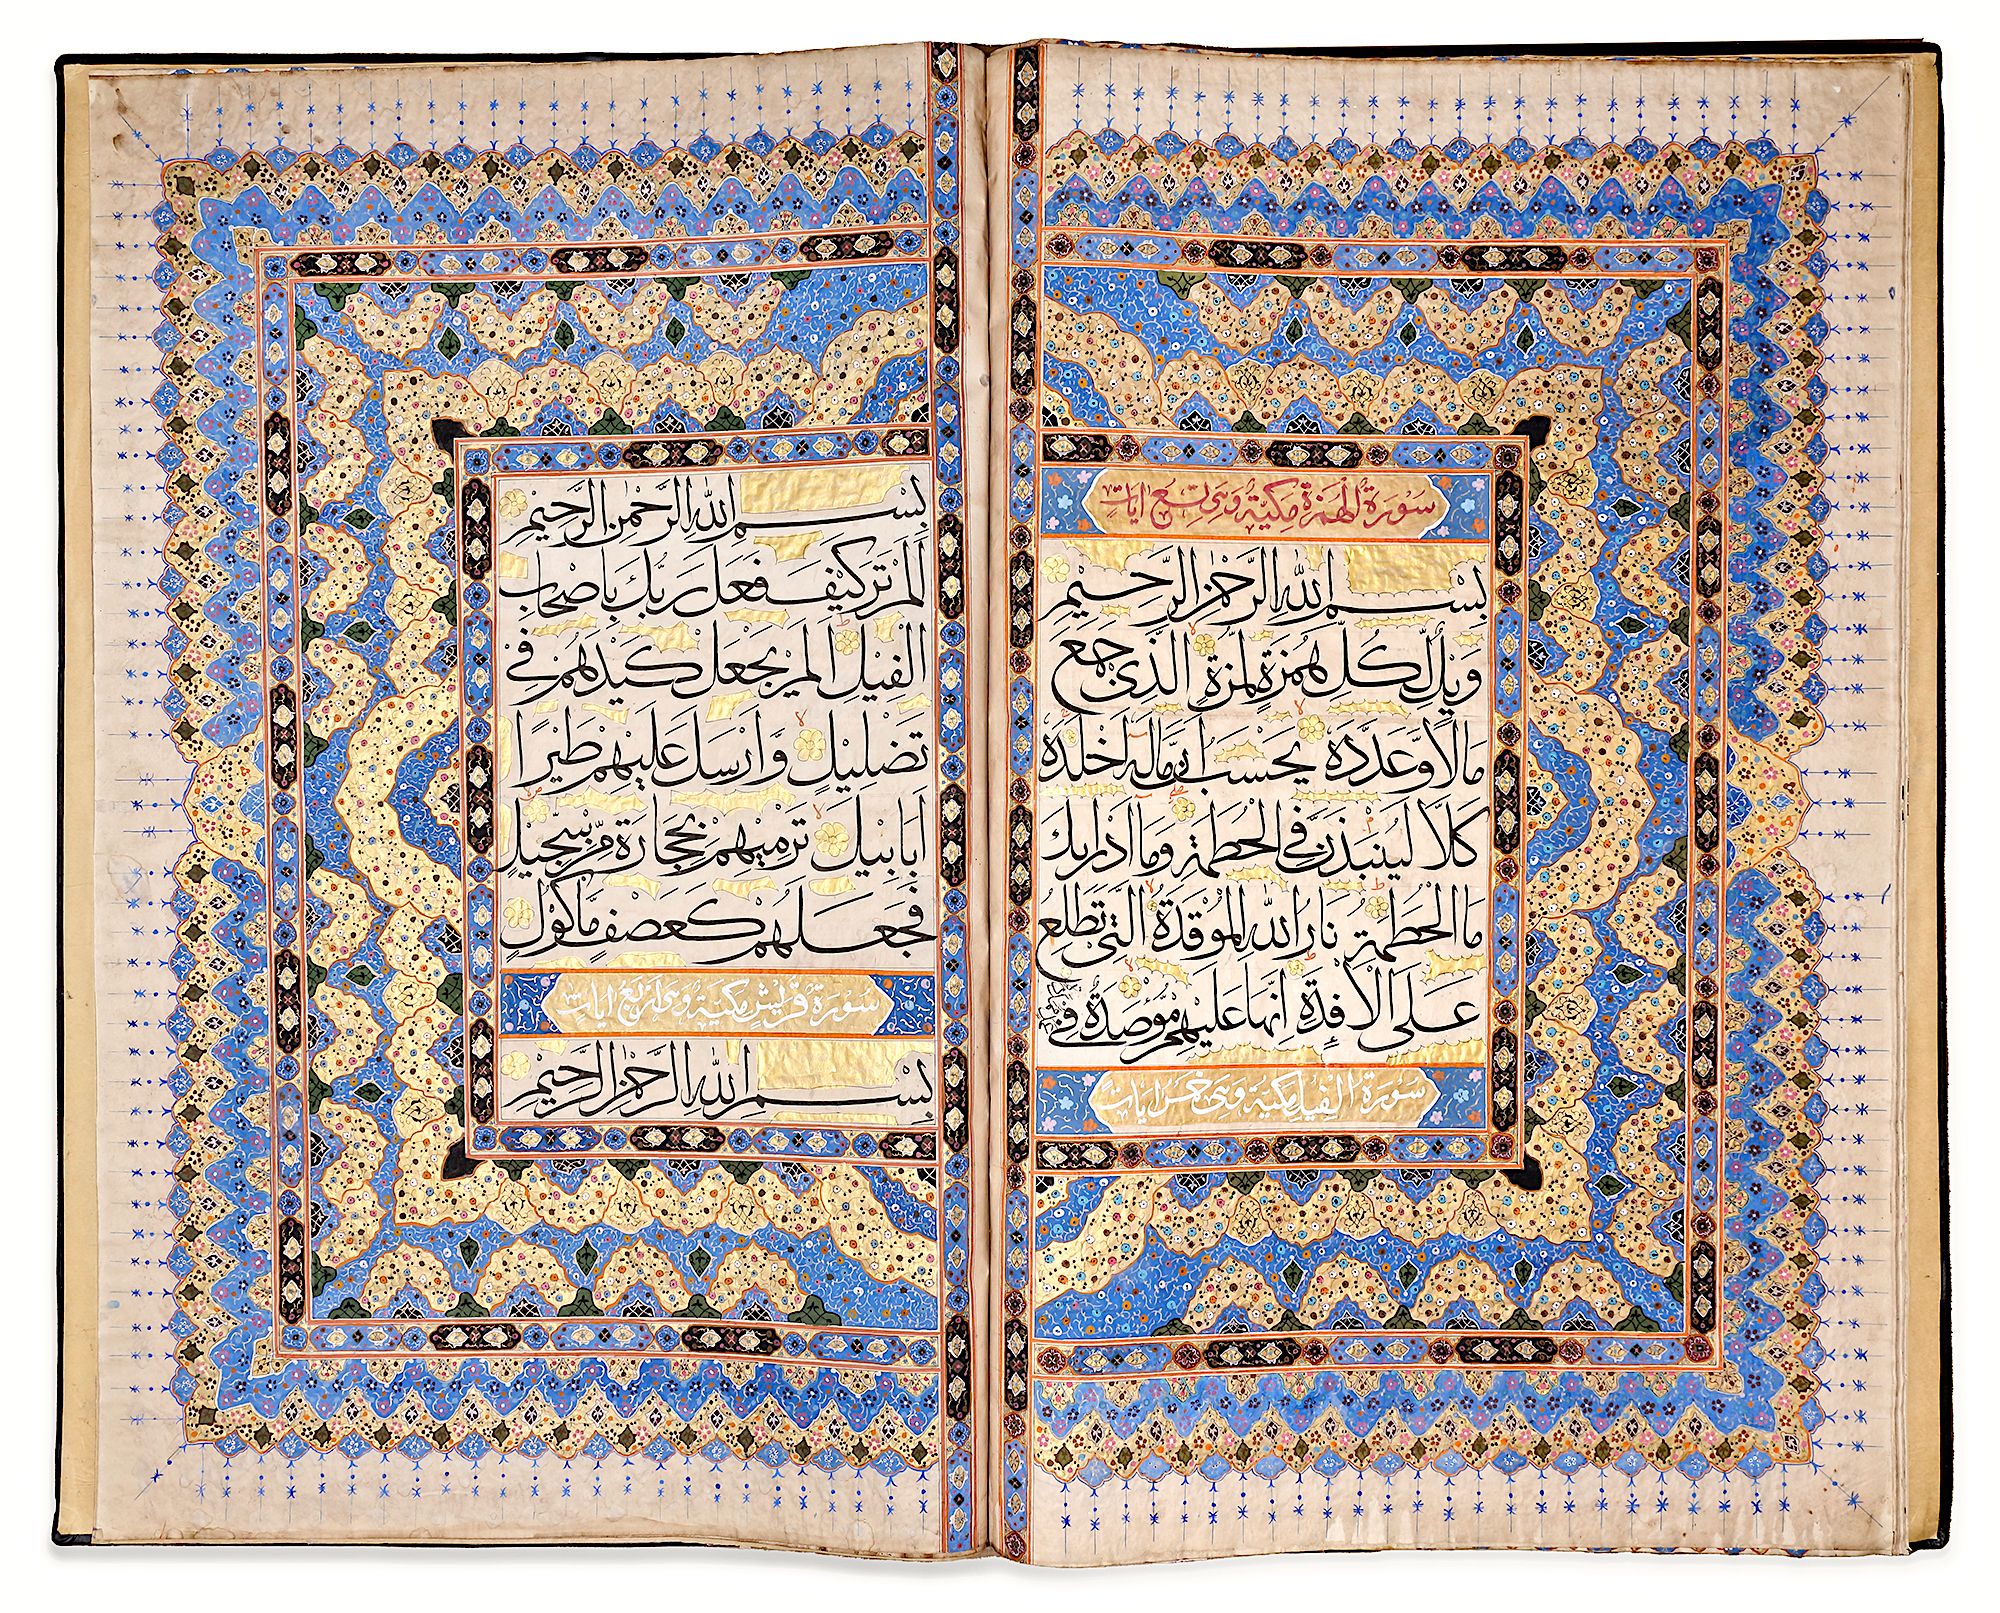 سورة الهمزة مكية وهي تسع ايات
بسم الله الرحمن الرحيم
ويل لكل همزة لمزة الذى جمع
مالا وعدده يحسب ان ماله اخلده
كلا لينبذن في الحطمة وما ادريك
ما الحطمة نار الله الموقدة التى تطلع
على الافدة انها عليهم مؤصدة فى
سورة الفيل مكية وهى خمس ايات
بسم الله الرحمن الرحيم
الم تر كيف فعل ربك باصحاب
الفيل الم يجعل كيدهم فى
تضليل وارسل عليهم طيرا
ابابيل ترميهم بحجارة من سجيل
فجعلهم كعصف ماكول
سورة قريش مكية وهى اربع ايات
بسم الله الرحمن الرحيم